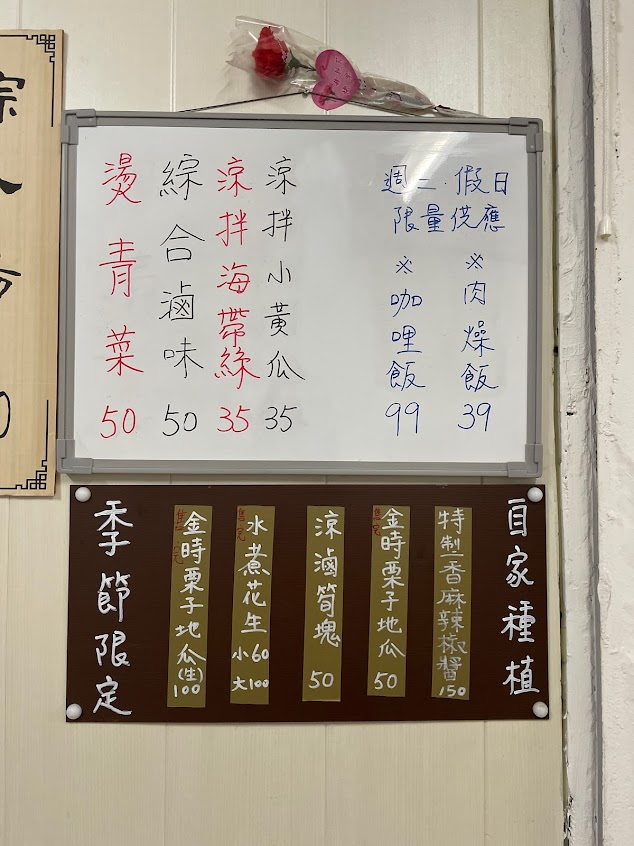 週三.假日
限量供應
※肉燥飯 39
※咖哩飯 99
涼拌小黃瓜 35
涼拌海帶絲 35
綜合滷味 50
燙青菜 50
自家種植
特製香麻辣椒醬 150
售完 金時栗子地瓜 50
涼滷筍塊 50
售完 水煮花生 小60 大100
售完 金時栗子地瓜(生) 100
季節限定